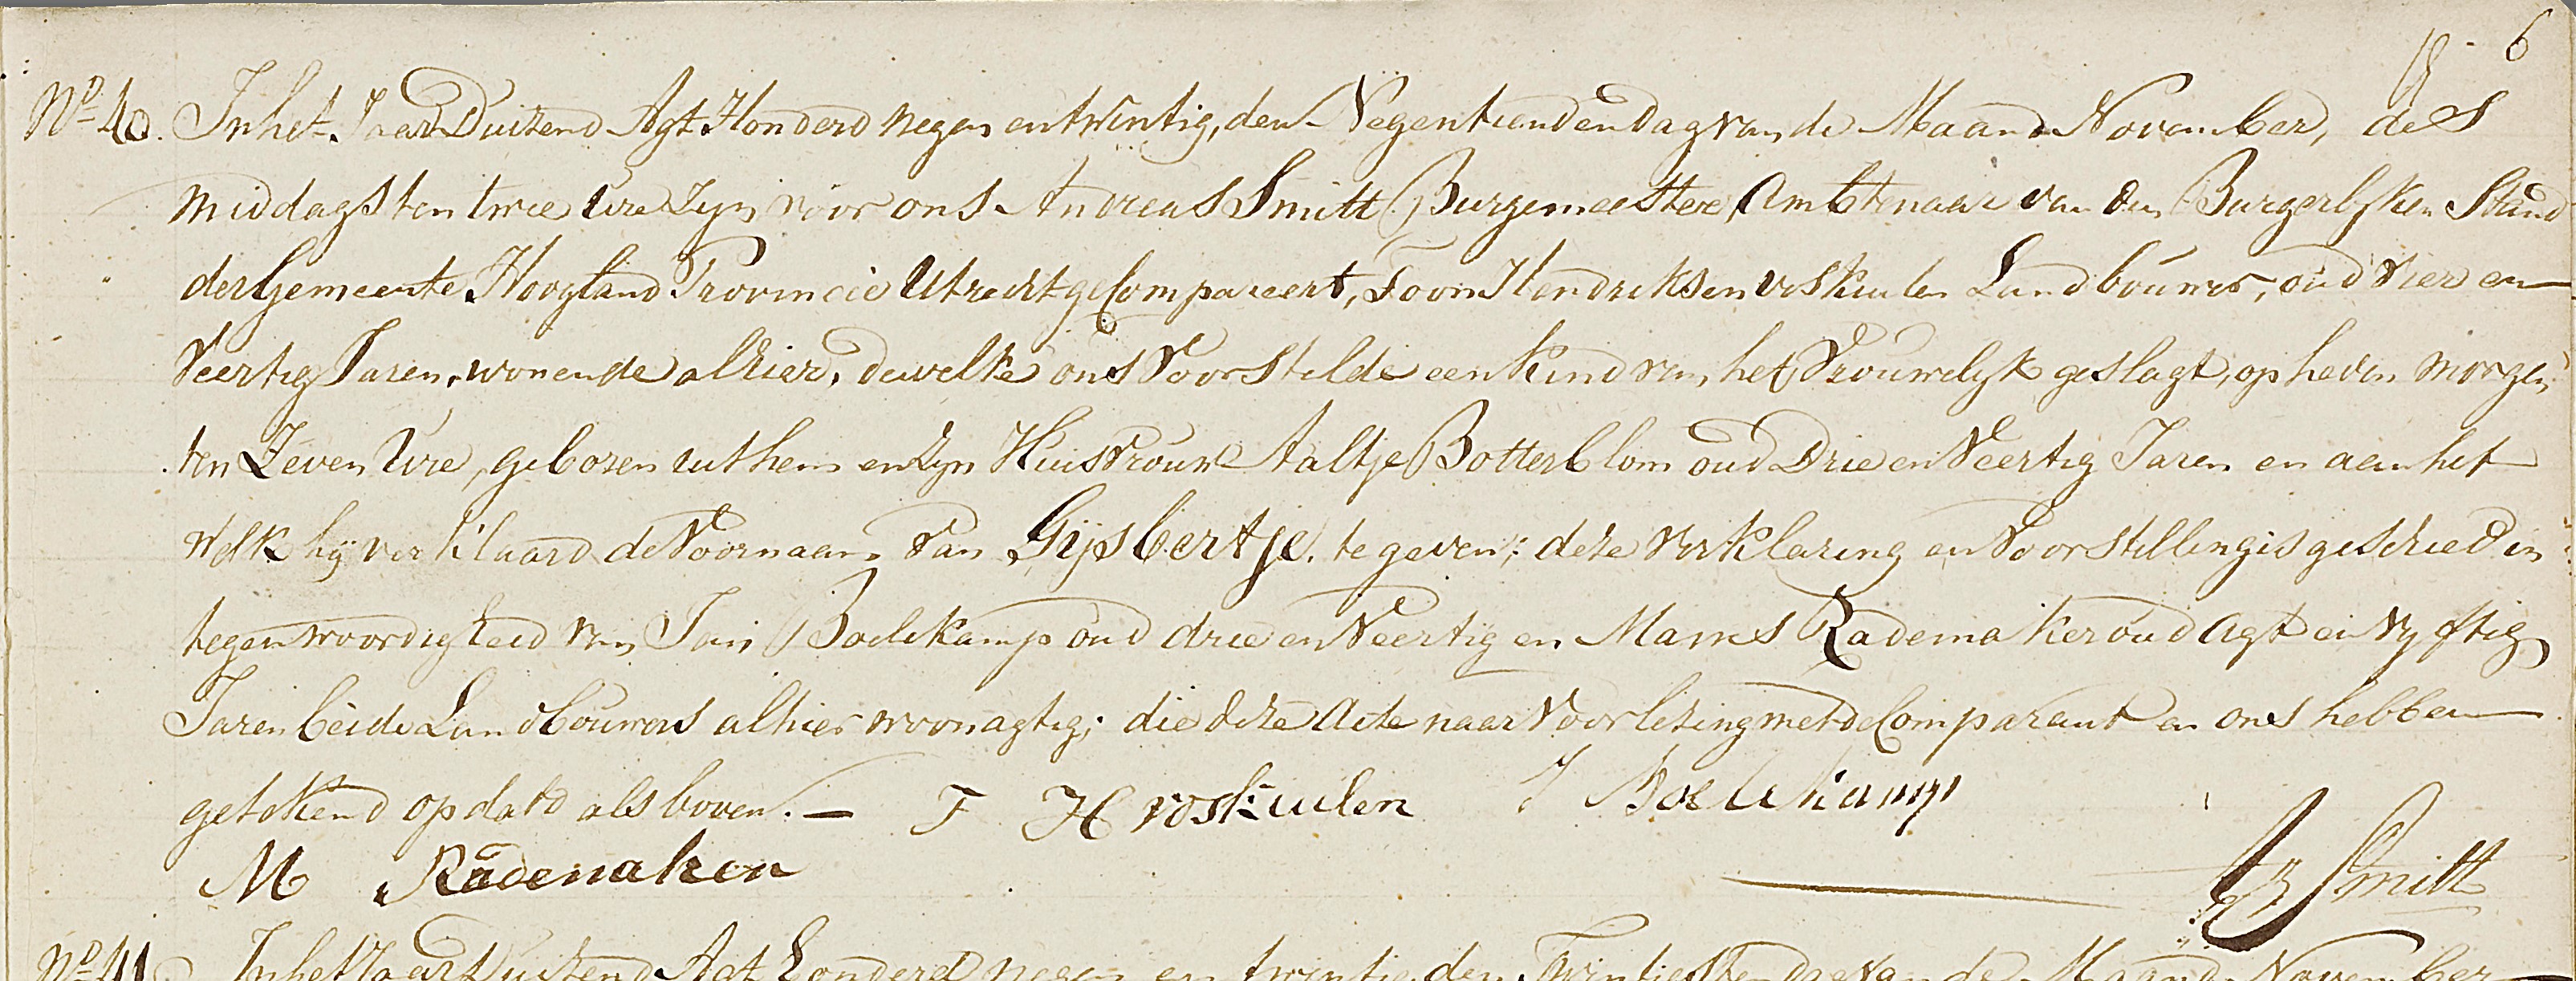 6
No 40. In het Jaar Duizend Agt Honderd negen en twintig, den Negentienden Dag van de Maand November, des
middags ten twee Ure zyn voor ons Andreas Smitt Burgemeester, Ambtenaar van den Burgerlyken Stand
der Gemeente Hoogland Provincie Utrecht gecompareert, Toon Hendriksen voskuilen Landbouwer, oud vier en
Veertig Jaren, wonende alhier, dewelke ons Voorstelde een kind van het Vrouwelyk geslagt, op heden morgen
ten Zeven Ure, geboren uit hem en zyn Huisvrouw Aaltje Botterblom oud Drie en Veertig Jaren en aan het
welk hij verklaard de Voornaam van Gijsbertje. te geven; deze verklaring en Voorstelling is geschied in
tegenwoordigheid van Jan Boelekamp oud drie en Veertig en Manes Rademaker oud Agt en vyftig
Jaren beide Landbouwers alhier woonagtig; die deze Acte naar Voorlezing met de Comparant en ons hebben
getekend op dato als boven. — T H voskuilen J Boelekamp
M Rademaker Smitt
No 41. In het Jaar Duizend Agt honderd negen en twintig, den Twintigsten dag van de Maand November